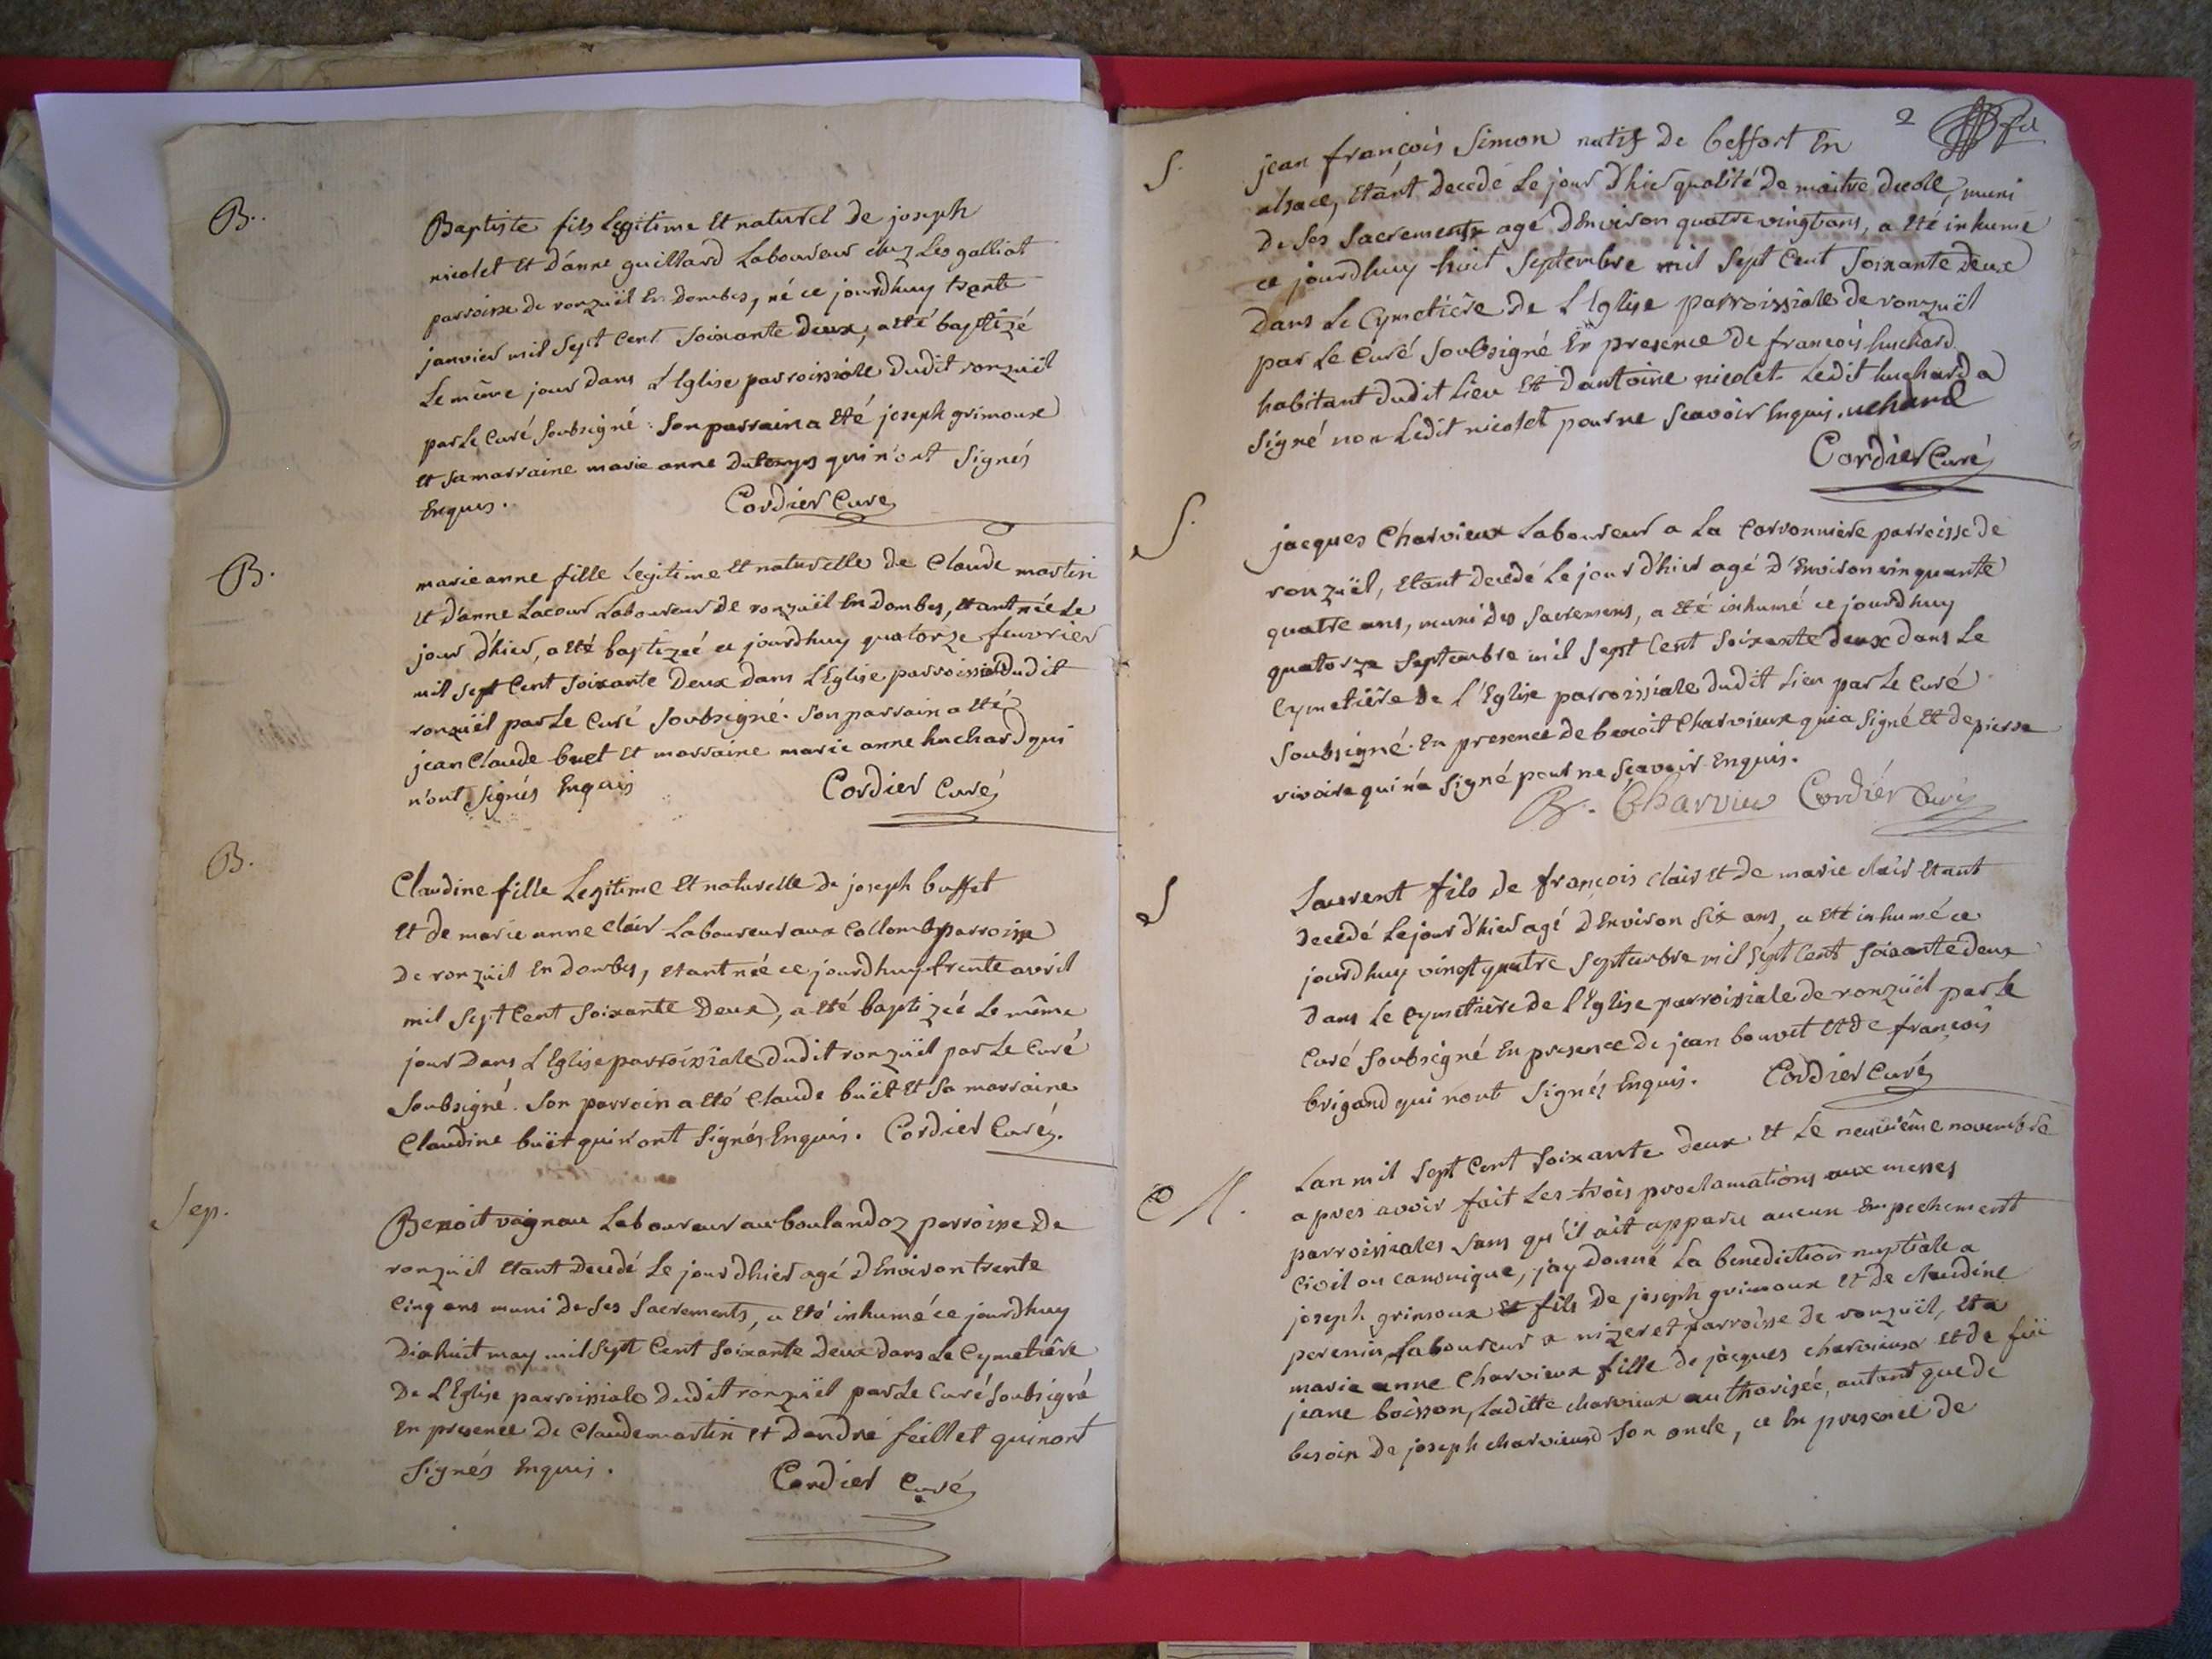 B.
Baptiste fils Legitime Et naturel de joseph
nicolet Et d'anne guillard Laboureur chez Les galliat
parroisse de ronzuël En Dombes, né ce jourdhuy trente
janvier mil Sept Cent Soixante Deux, a Eté baptizé
Le même jour dans L'Eglise parroissiale Dudit ronzuël
par Le Curé Soubsigné. Son parrain a Eté joseph grimoux
Et Sa marraine marie anne qui n'ont Signés
Enquis. Cordier Curé
B.
marie anne fille Legitime Et naturelle de Claude martin
Et d'anne Lacour Laboureur de ronzuël En Dombes, Etant née Le
jour d'hier, a Eté baptizeé ce jourdhuy quatorze feuvrier
mil Sept Cent Soixante Deux dans L'Eglise parroissiale Dudit
ronzuël par Le Curé Soubsigné. Son parrain a Eté
jean Claude buet Et marraine marie anne huchard qui
n'ont Signés Enquis Cordier Curé
B.
Claudine fille Legitime Et naturelle de joseph buffet
Et de marie anne clair Laboureur aux Collomb parroisse
De ronzuël En dombes, Etant née ce jourdhuy trente avril
mil Sept Cent Soixante Deux, a Eté baptizeé Le même
jour Dans L'Eglise parroissiale Dudit ronzuël par Le Curé
Soubsigné. Son parrain a Eté Claude buët Et Sa marraine
Claudine buët qui n'ont Signés Enquis. Cordier Curé.
Sep.
Benoit vagnau Laboureur au boulandoz parroisse De
ronzuël Etant Decedé Le jour dhier agé D'Environ trente
Cinq ans muni de Ses Sacrements, a Eté inhumé ce jourdhuy
Dixhuit may mil Sept Cent Soixante Deux dans Le Cymetière
De L'Eglise parroissiale Dudit ronzuël par Le Curé Soubsigné
En presence De Claude martin Et Dandré feillet qui n'ont
Signés Enquis. Cordier Curé
2
S.
jean françois Simon natif De beffort En
alsace, Etant Decedé Le jour D'hier qualité De maitre decole, muni
De Ses Sacrements agé D'Environ quatre vingt ans, a Eté inhumé
ce jourdhuy huit Septembre mil Sept Cent Soixante Deux
Dans Le Cymetière De L'Eglise parroissiale de ronzuël
par Le Curé Soubsigné En presence De françois huchard
habitant Dudit Lieu Et D'antoine nicolet Ledit huchard a
Signé non Ledit nicolet pour ne Scavoir Enquis. uchard
Cordier Curé
S.
jacques Charvieux Laboureur a La Corronnière parroisse de
ronzuël, Etant Decedé Le jour D'hier agé D'Environ cinquante
quatre ans, muni Des Sacremens, a Eté inhumé ce jourdhuy
quatorze Septembre mil Sept Cent Soixante Deux dans Le
Cymetière De L'Eglise parroissiale Dudit Lieu par Le Curé
Soubsigné. En presence De benoit Charvieux qui a Signé Et de pierre
vivoire qui n'a Signé pour ne Scavoir Enquis.
B. Charvieu Cordier Curé
S
Laurent fils De françois clair Et De marie clair Etant
Decedé Le jour D'hier agé D'Environ Six ans, a Eté inhumé ce
jourdhuy vingt quatre Septembre mil Sept Cent Soixante Deux
Dans Le Cymetière De L'Eglise parroissiale de ronzuël par Le
Curé Soubsigné En presence De jean bouvet Et De françois
brigand qui n'ont Signés Enquis. Cordier Curé
M.
L'an mil Sept Cent Soixante Deux Et Le neuvième novembre
apres avoir fait Les trois proclamations aux messes
parroissiales Sans qu'il ait apparu aucun Empechement
Civil ou canonique, jay Donné La benediction nuptiale a
joseph grimoux fils De joseph grimoux Et De claudine
perenin, Laboureur a nizeret parroisse De ronzuël, Et a
marie anne Charvieux fille De jacques charvieux Et de füe
jeane boisson, Laditte charvieux authorisée, autant que De
besoin De joseph charvieux Son oncle, ce En presence De